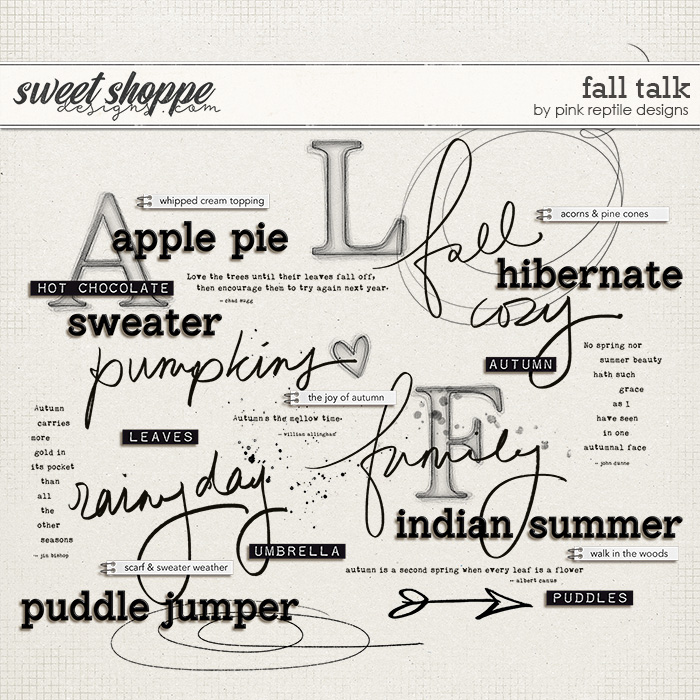 sweet shoppe
designs.com
fall talk
by pink reptile designs
L
fall
A
whipped cream topping
apple pie
acorns & pine cones
hibernate
HOT CHOCOLATE
Love the trees until their leaves fall off,
then encourage them to try again next year.
- chad sugg
sweater
cozy
pumpkins
AUTUMN
No spring nor
summer beauty
hath such
grace
as I
have seen
in one
autumnal face
- john donne
the joy of autumn
F
family
Autumn
carries
more
gold in
its pocket
than
all
the
other
seasons
- jim bishop
LEAVES
Autumn's the mellow time.
- william allingham
rainy day
indian summer
UMBRELLA
walk in the woods
scarf & sweater weather
autumn is a second spring when every leaf is a flower
- albert camus
puddle jumper
PUDDLES